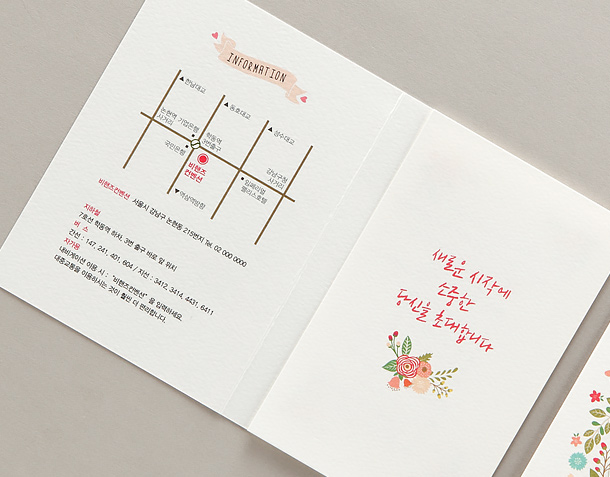 INFORMATION
▲한남대교
▲동호대교
▲성수대교
논현역
사거리
기업은행
학동역
3번출구
국민은행
비헨즈
컨벤션
강남구청
사거리
임페리얼
팰리스호텔
▼역삼역방향
비헨즈컨벤션 서울시 강남구 논현동 215번지 Tel. 02 000 0000
지하철
7호선 학동역 하차, 3번 출구 바로 앞 위치
버 스
간선 : 147, 241, 401, 604 / 지선 : 3412, 3414, 4431, 6411
자가용
내비게이션 이용 시 : "비헨즈컨벤션" 을 입력하세요.
대중교통을 이용하시는 것이 훨씬 더 편리합니다.
새로운 시작에
소중한
당신을 초대합니다